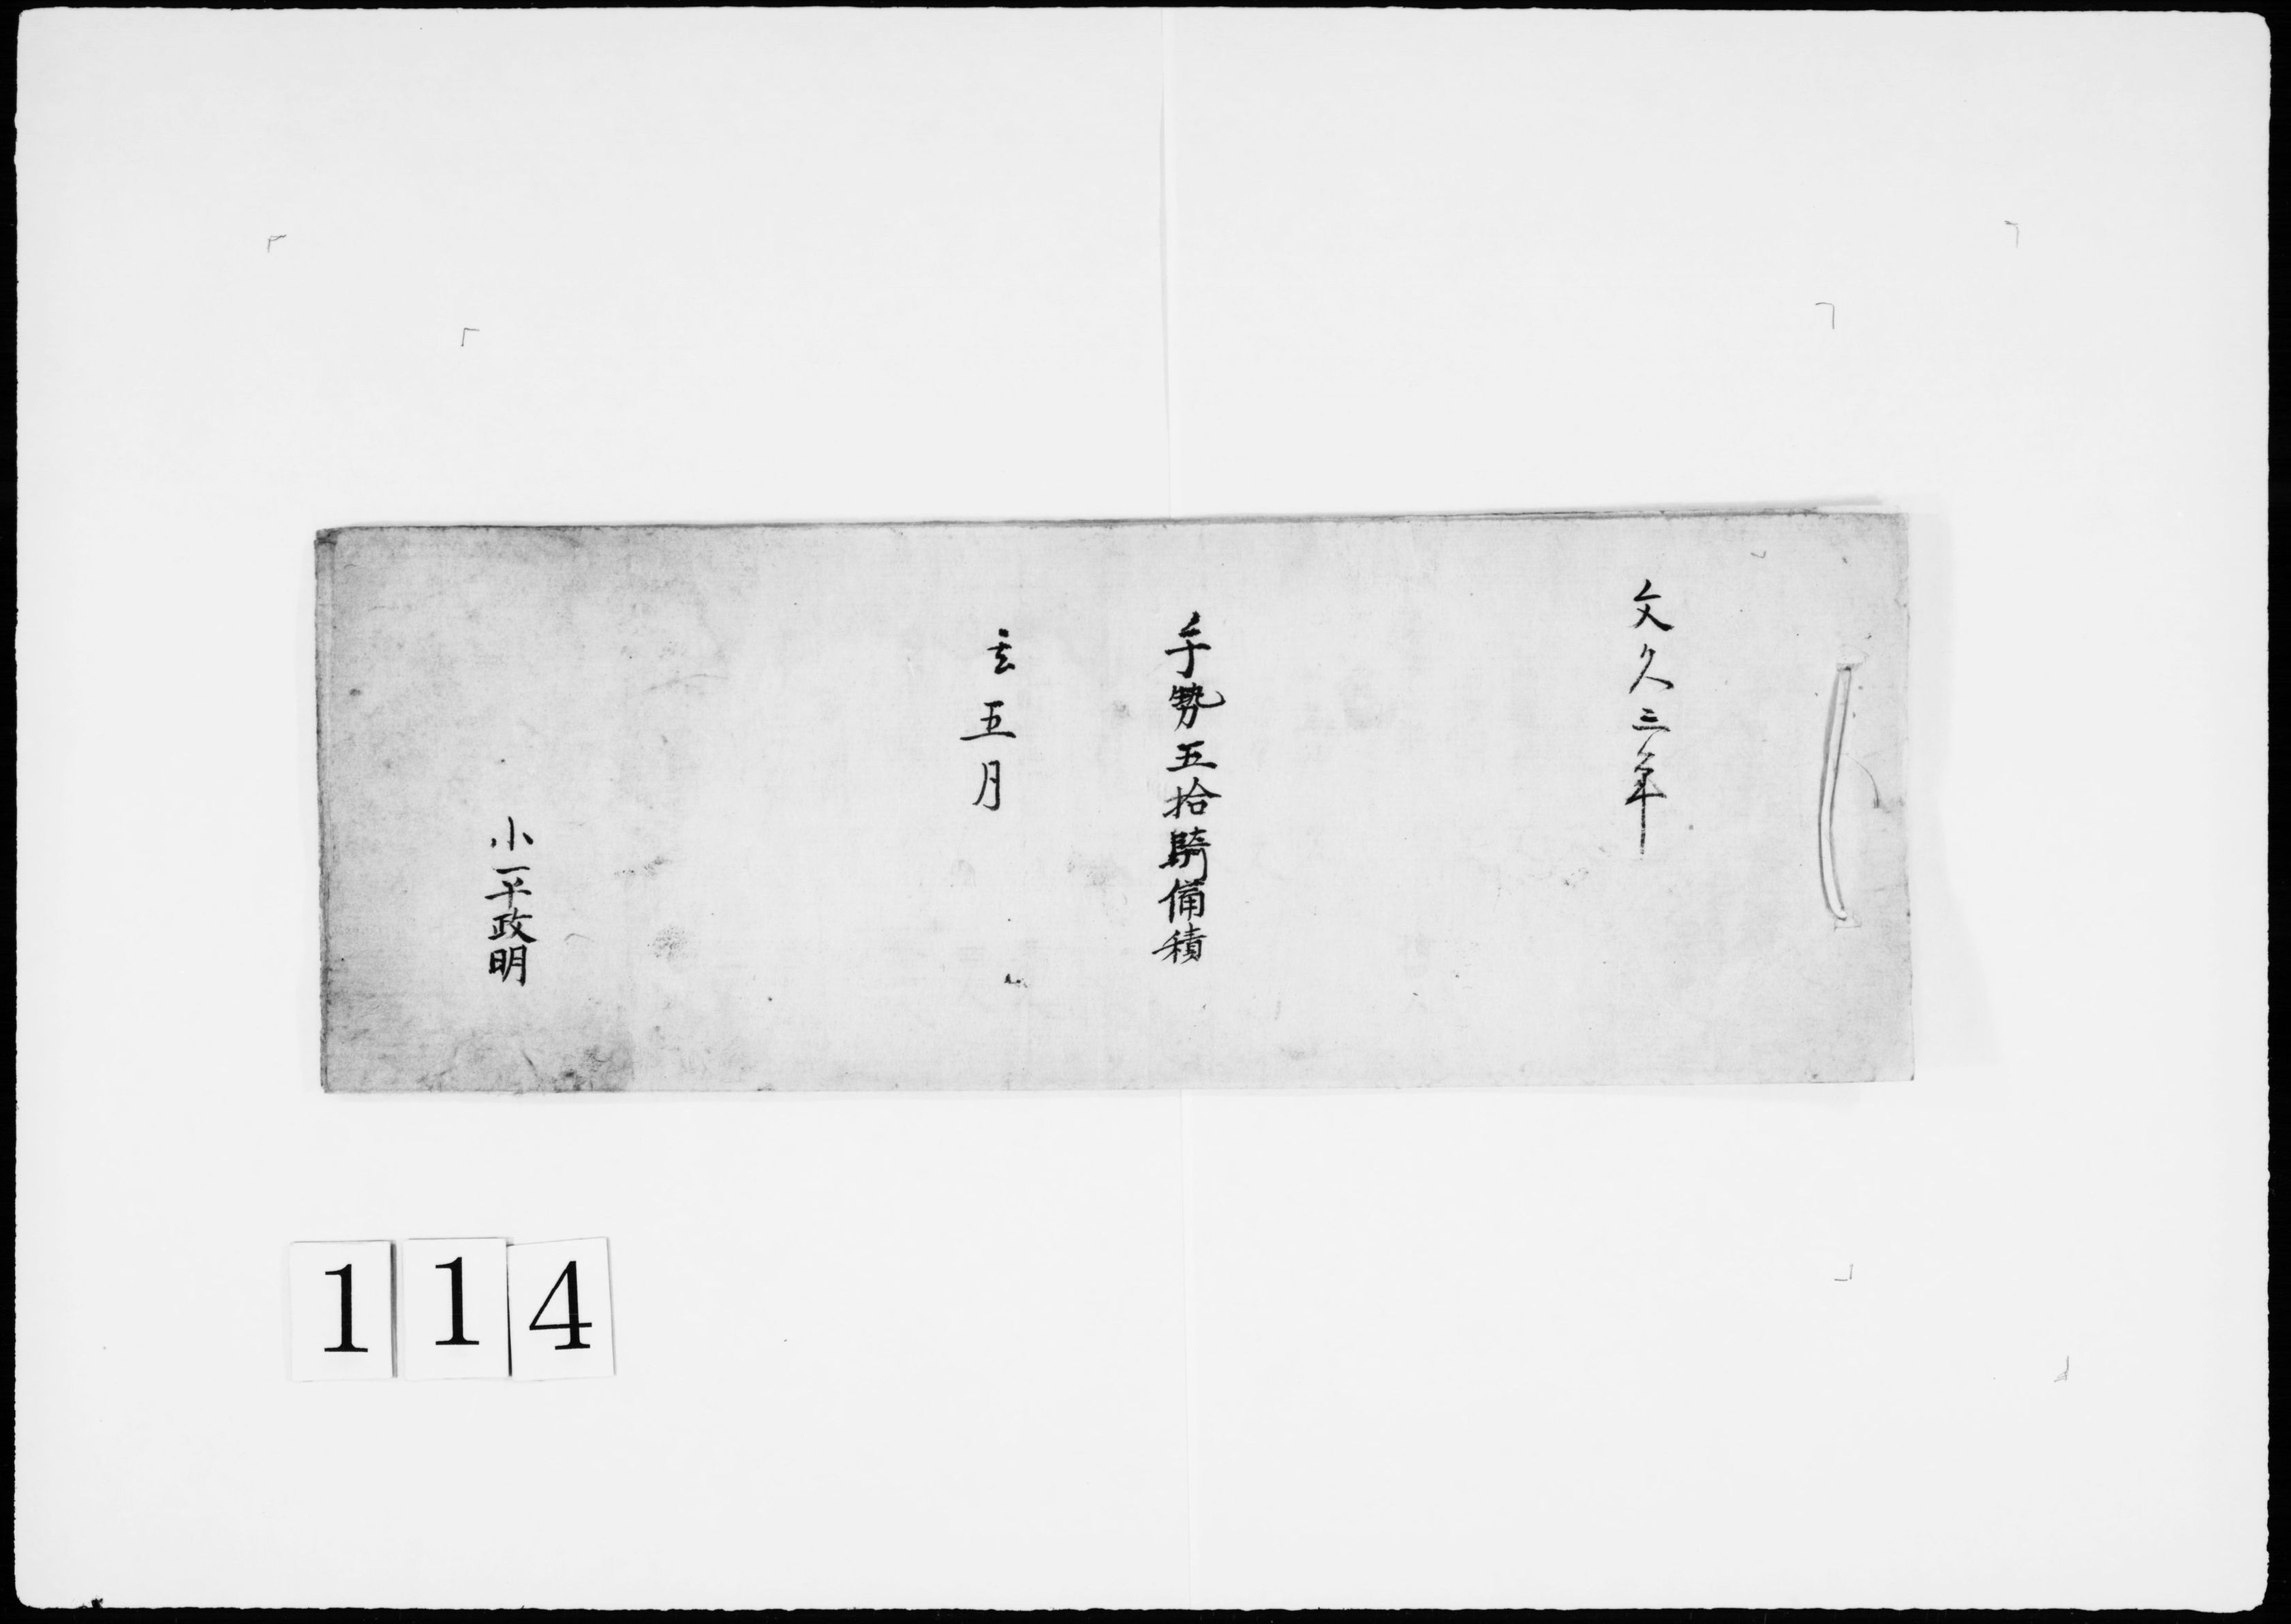 文久三年
手勢五拾騎備積
亥五月
小平政明
114